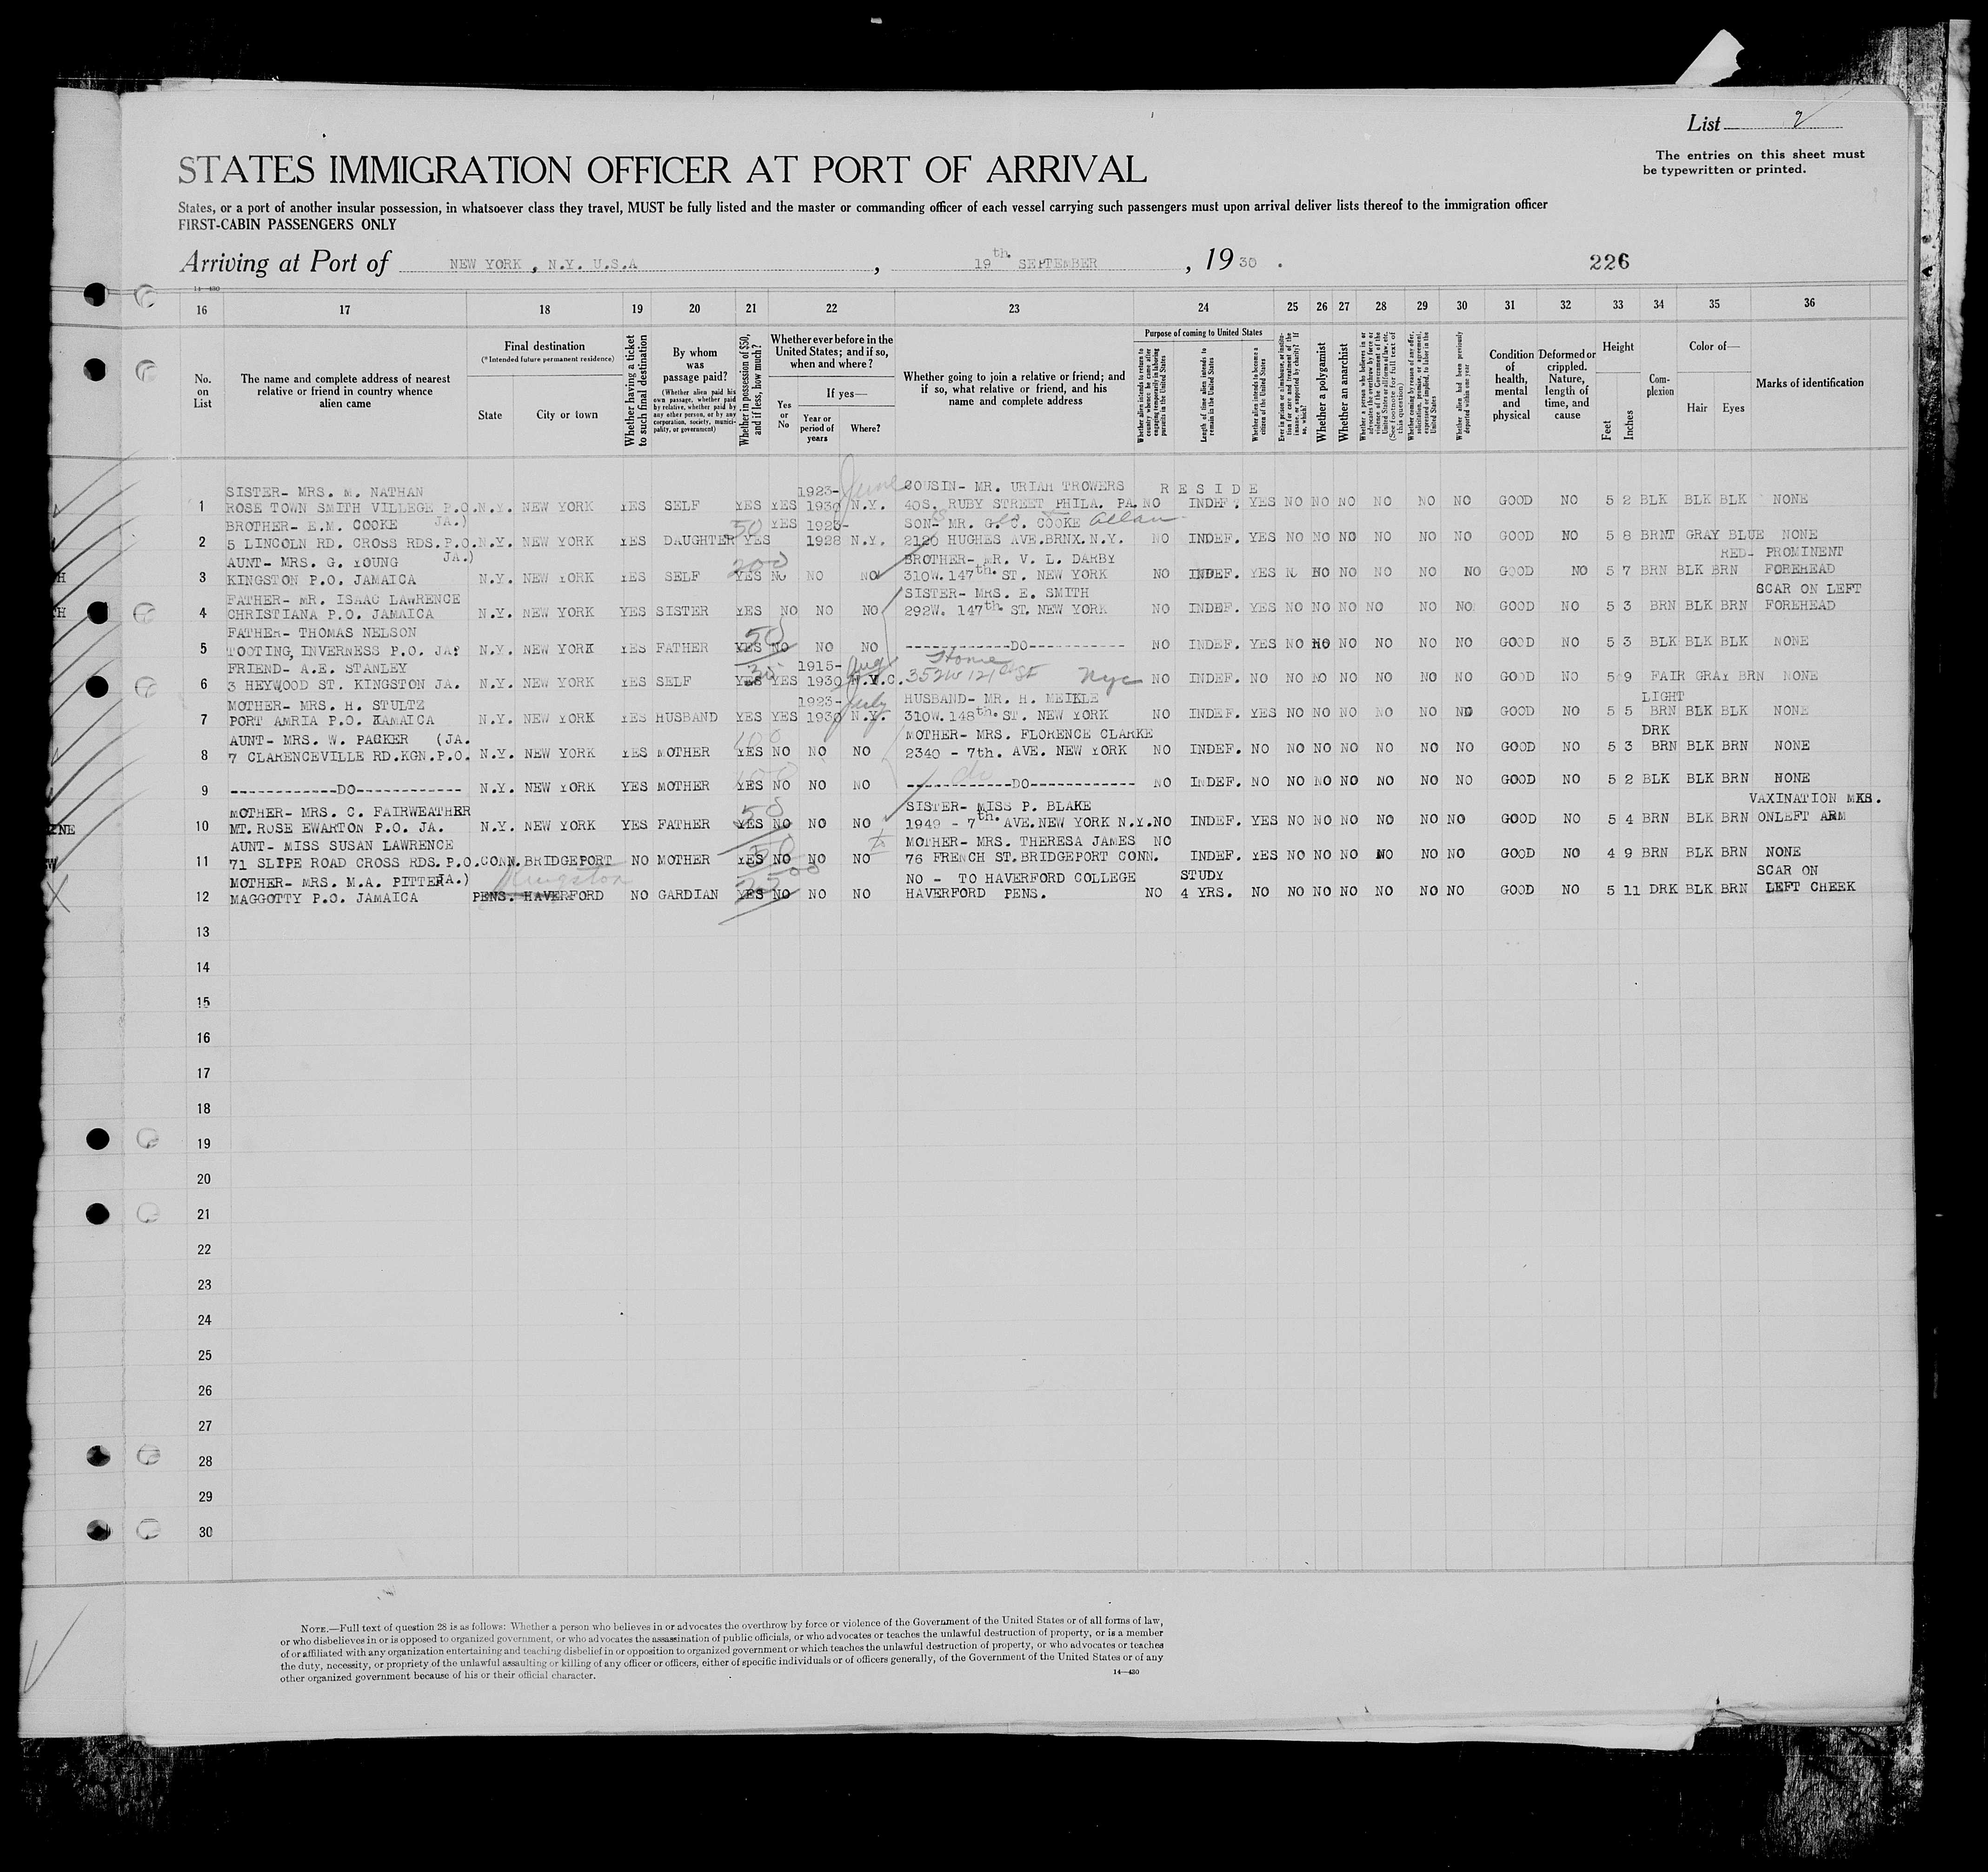 List 2
The entries on this sheet must
be typewritten or printed.
STATES IMMIGRATION OFFICER AT PORT OF ARRIVAL
States, or a port of another insular possession, in whatsoever class they travel, MUST be fully listed and the master or commanding officer of each vessel carrying such passengers must upon arrival deliver lists thereof to the immigration officer
FIRST-CABIN PASSENGERS ONLY
Arriving at Port of NEW YORK, N.Y. U.S.A , 19th. SEPTEMBER , 1930 . 226
14—430
16 17 18 19 20 21 22 23 24 25 26 27 28 29 30 31 32 33 34 35 36
No. on List
The name and complete address of nearest relative or friend in country whence alien came
Final destination
(*Intended future permanent residence)
State City or town
Whether having a ticket to such final destination
By whom was passage paid?
(Whether alien paid his own passage, whether paid by relative, whether paid by any other person, or by any corporation, society, municipality, or government)
Whether in possession of $50, and if less, how much?
Whether ever before in the United States; and if so, when and where?
Yes or No
If yes—
Year or period of years Where?
Whether going to join a relative or friend; and if so, what relative or friend, and his name and complete address
Purpose of coming to United States
Whether alien intends to return to country whence he came after engaging temporarily in laboring pursuits in the United States
Length of time alien intends to remain in the United States
Whether alien intends to become a citizen of the United States
Ever in prison or almshouse, or institution for care and treatment of the insane, or supported by charity? If so, which?
Whether a polygamist
Whether an anarchist
Whether a person who believes in or advocates the overthrow by force or violence of the Government of the United States or all forms of law, etc. (See footnote for full text of this question)
Whether coming by reason of any offer, solicitation, promise, or agreement, expressed or implied, to labor in the United States
Whether alien had been previously deported within one year
Condition of health, mental and physical
Deformed or crippled. Nature, length of time, and cause
Height
Feet Inches
Complexion
Color of—
Hair Eyes
Marks of identification
SISTER- MRS. M. NATHAN 1923- June COUSIN- MR. URIAH TROWERS R E S I D E
1 ROSE TOWN SMITH VILLEGE P.O. N.Y. NEW YORK YES SELF YES YES 1930 N.Y. 40S. RUBY STREET PHILA. PA. NO INDEF. YES NO NO NO NO NO NO GOOD NO 5 2 BLK BLK BLK NONE
BROTHER- E.M. COOKE JA.) 50 YES 1923- SON- MR. G. C. COOKE Allan
2 5 LINCOLN RD. CROSS RDS.P.O. N.Y. NEW YORK YES DAUGHTER YES 1928 N.Y. 2120 HUGHES AVE.BRNX.N.Y. NO INDEF. YES NO NO NO NO NO NO GOOD NO 5 8 BRNT GRAY BLUE NONE
AUNT- MRS. G. YOUNG JA.) 200 BROTHER- MR. V. L. DARBY RED- PROMINENT
3 KINGSTON P.O. JAMAICA N.Y. NEW YORK YES SELF YES NO NO NO 310W. 147th. ST. NEW YORK NO INDEF. YES N NO NO NO NO NO GOOD NO 5 7 BRN BLK BRN FOREHEAD
FATHER- MR. ISAAC LAWRENCE SISTER- MRS. E. SMITH SCAR ON LEFT
4 CHRISTIANA P.O. JAMAICA N.Y. NEW YORK YES SISTER YES NO NO NO 292W. 147th. ST. NEW YORK NO INDEF. YES NO NO NO NO NO NO GOOD NO 5 3 BRN BLK BRN FOREHEAD
FATHER- THOMAS NELSON 50
5 TOOTING, INVERNESS P.O. JA. N.Y. NEW YORK YES FATHER YES NO NO NO ------------DO----------- NO INDEF. YES NO NO NO NO NO NO GOOD NO 5 3 BLK BLK BLK NONE
FRIEND- A.E. STANLEY 30 1915- Aug Home
6 3 HEYWOOD ST. KINGSTON JA. N.Y. NEW YORK YES SELF YES YES 1930 N.Y.C. 352 W 121st St NYC NO INDEF. NO NO NO NO NO NO NO GOOD NO 5 9 FAIR GRAY BRN NONE
MOTHER- MRS. H. STULTZ 1923- July HUSBAND- MR. H. MEIKLE LIGHT
7 PORT AMRIA P.O. KAMAICA N.Y. NEW YORK YES HUSBAND YES YES 1930 N.Y. 310W. 148th. ST. NEW YORK NO INDEF. YES NO NO NO NO NO NO GOOD NO 5 5 BRN BLK BLK NONE
AUNT- MRS. W. PACKER (JA. 100 MOTHER- MRS. FLORENCE CLARKE DRK
8 7 CLARENCEVILLE RD.KGN.P.O. N.Y. NEW YORK YES MOTHER YES NO NO NO 2340 - 7th. AVE. NEW YORK NO INDEF. NO NO NO NO NO NO NO GOOD NO 5 3 BRN BLK BRN NONE
100 do
9 ------------DO------------ N.Y. NEW YORK YES MOTHER YES NO NO NO ------------DO------------ NO INDEF. NO NO NO NO NO NO NO GOOD NO 5 2 BLK BLK BRN NONE
MOTHER- MRS. C. FAIRWEATHER 50 SISTER- MISS P. BLAKE VAXINATION MKS.
10 MT. ROSE EWARTON P.O. JA. N.Y. NEW YORK YES FATHER YES NO NO NO 1949 - 7th. AVE.NEW YORK N.Y. NO INDEF. YES NO NO NO NO NO NO GOOD NO 5 4 BRN BLK BRN ONLEFT ARM
AUNT- MISS SUSAN LAWRENCE 50 MOTHER- MRS. THERESA JAMES NO
11 71 SLIPE ROAD CROSS RDS.P.O. CONN. BRIDGEPORT NO MOTHER YES NO NO NO 76 FRENCH ST.BRIDGEPORT CONN. INDEF. YES NO NO NO NO NO NO GOOD NO 4 9 BRN BLK BRN NONE
MOTHER- MRS. M.A. PITTER JA.) Kingston NO - TO HAVERFORD COLLEGE STUDY SCAR ON
12 MAGGOTTY P.O. JAMAICA PENS. HAVERFORD NO GARDIAN YES NO NO NO HAVERFORD PENS. NO 4 YRS. NO NO NO NO NO NO NO GOOD NO 5 11 DRK BLK BRN LEFT CHEEK
13
14
15
16
17
18
19
20
21
22
23
24
25
26
27
28
29
30
NOTE.—Full text of question 28 is as follows: Whether a person who believes in or advocates the overthrow by force or violence of the Government of the United States or of all forms of law,
or who disbelieves in or is opposed to organized government, or who advocates the assassination of public officials, or who advocates or teaches the unlawful destruction of property, or is a member
of or affiliated with any organization entertaining and teaching disbelief in or opposition to organized government or which teaches the unlawful destruction of property, or who advocates or teaches
the duty, necessity, or propriety of the unlawful assaulting or killing of any officer or officers, either of specific individuals or of officers generally, of the Government of the United States or of any
other organized government because of his or their official character.
14—430